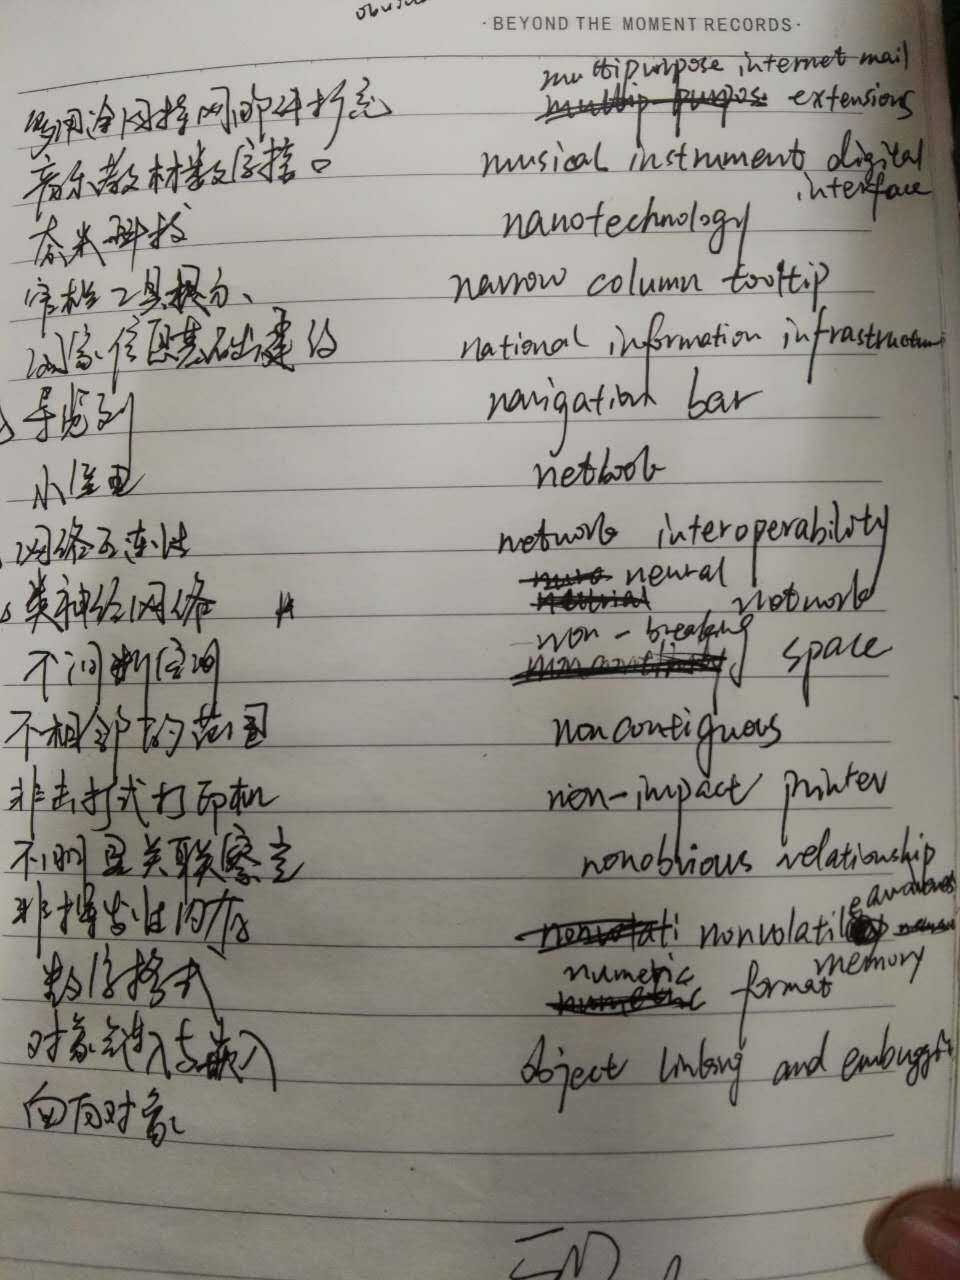 · BEYOND THE MOMENT RECORDS ·
多用途网 multipurpose internet mail
extensions
音乐 材数字接口 musical instrument digital
interface
奈米科技 nanotechnology
窄栏工具提示 narrow column tooltip
国家信息基础建设 national information infrastructu
导览列 navigation bar
小笔电 netbook
网络互连性 network interoperability
类神经网络 neural network
不间断空间 non-breaking space
不相邻的范围 noncontiguous
非击打式打印机 non-impact printer
不明显关联察觉 nonobvious relationship
awareness
非挥发性内存 nonvolatile memory
数字格式 numeric format
对象连入与嵌入 object linking and
面向对象